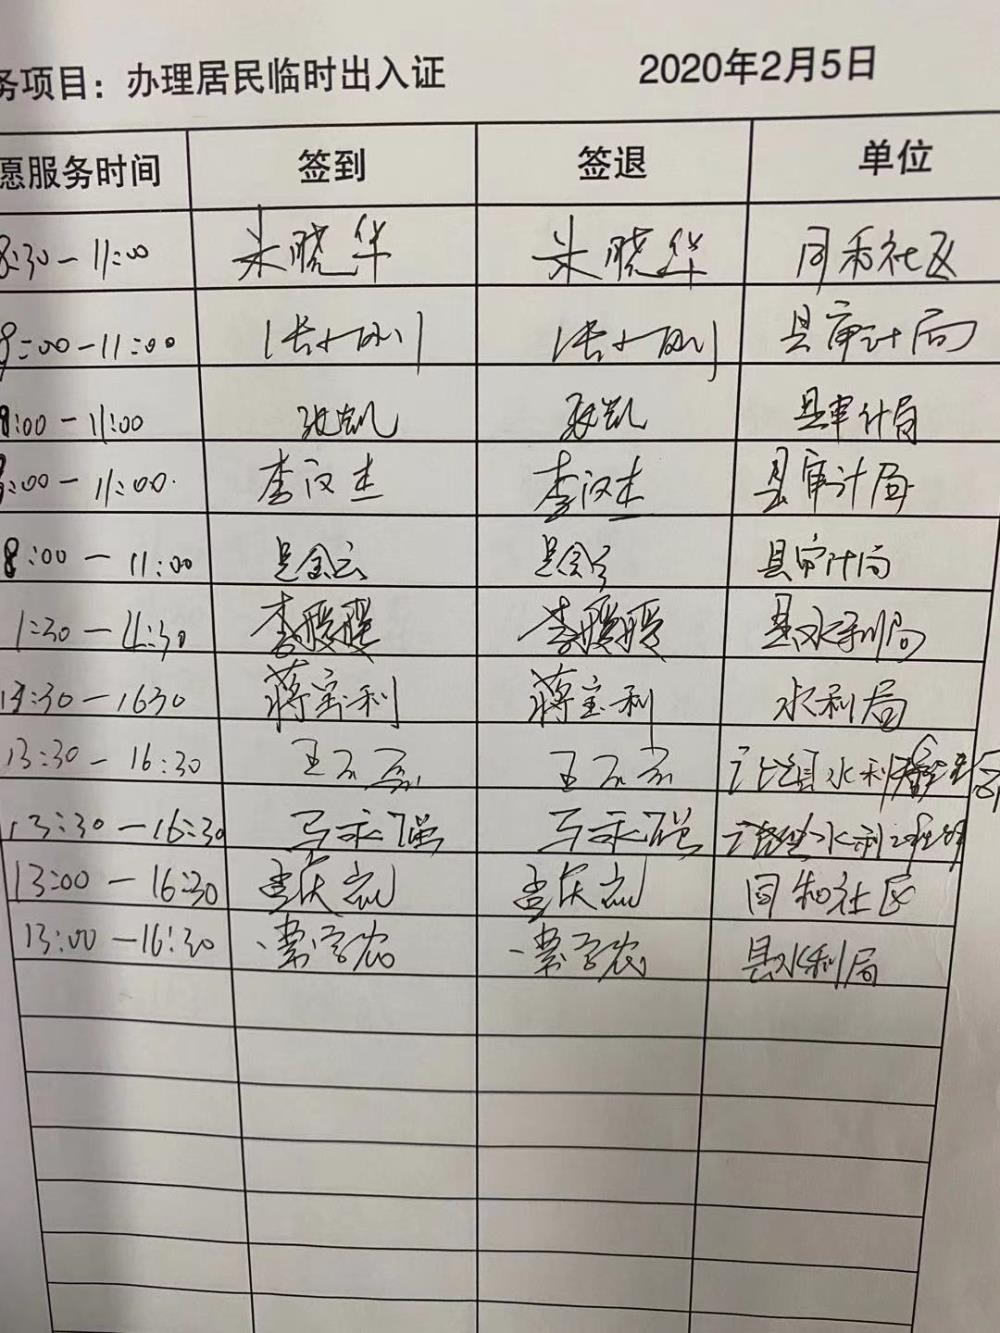 务项目：办理居民临时出入证 2020年2月5日
愿服务时间 签到 签退 单位
8:30-11:00 朱晓华 朱晓华 同和社区
9:00-11:00 张小刚 张小刚 县审计局
9:00-11:00 张凯 张凯 县审计局
:00-11:00 李汉杰 李汉杰 县审计局
8:00-11:00 县审计局
1:30-4:30 李媛媛 李媛媛 县水利局
13:30-1630 蒋宝利 蒋宝利 水利局
13:30-16:30 水利
13:30-16:30 马永强 马永强 水利
13:00-16:30 同和社区
13:00-16:30 县水利局